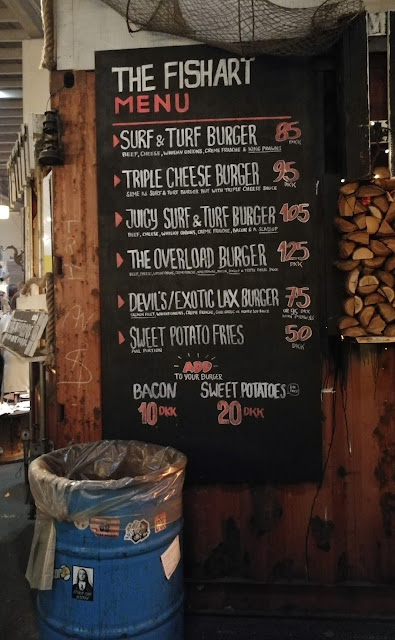 THE FISHART
MENU
SURF & TURF BURGER 85 DKK
BEEF, CHEESE, WHISKY ONIONS, CREME FRAICHE & KING PRAWNS
TRIPLE CHEESE BURGER 95 DKK
SAME AS SURF & TURF BURGER BUT WITH TRIPLE CHEESE SAUCE
JUICY SURF & TURF BURGER 105
BEEF, CHEESE, WHISKY ONIONS, CREME FRAICHE, BACON &
THE OVERLOAD BURGER 125 DKK
BEEF, CHEESE,
DEVIL'S/EXOTIC LAX BURGER 75
CREME FRAICHE,
SWEET POTATO FRIES 50 DKK
ADD
TO YOUR BURGER
BACON SWEET POTATOES
10 DKK 20 DKK